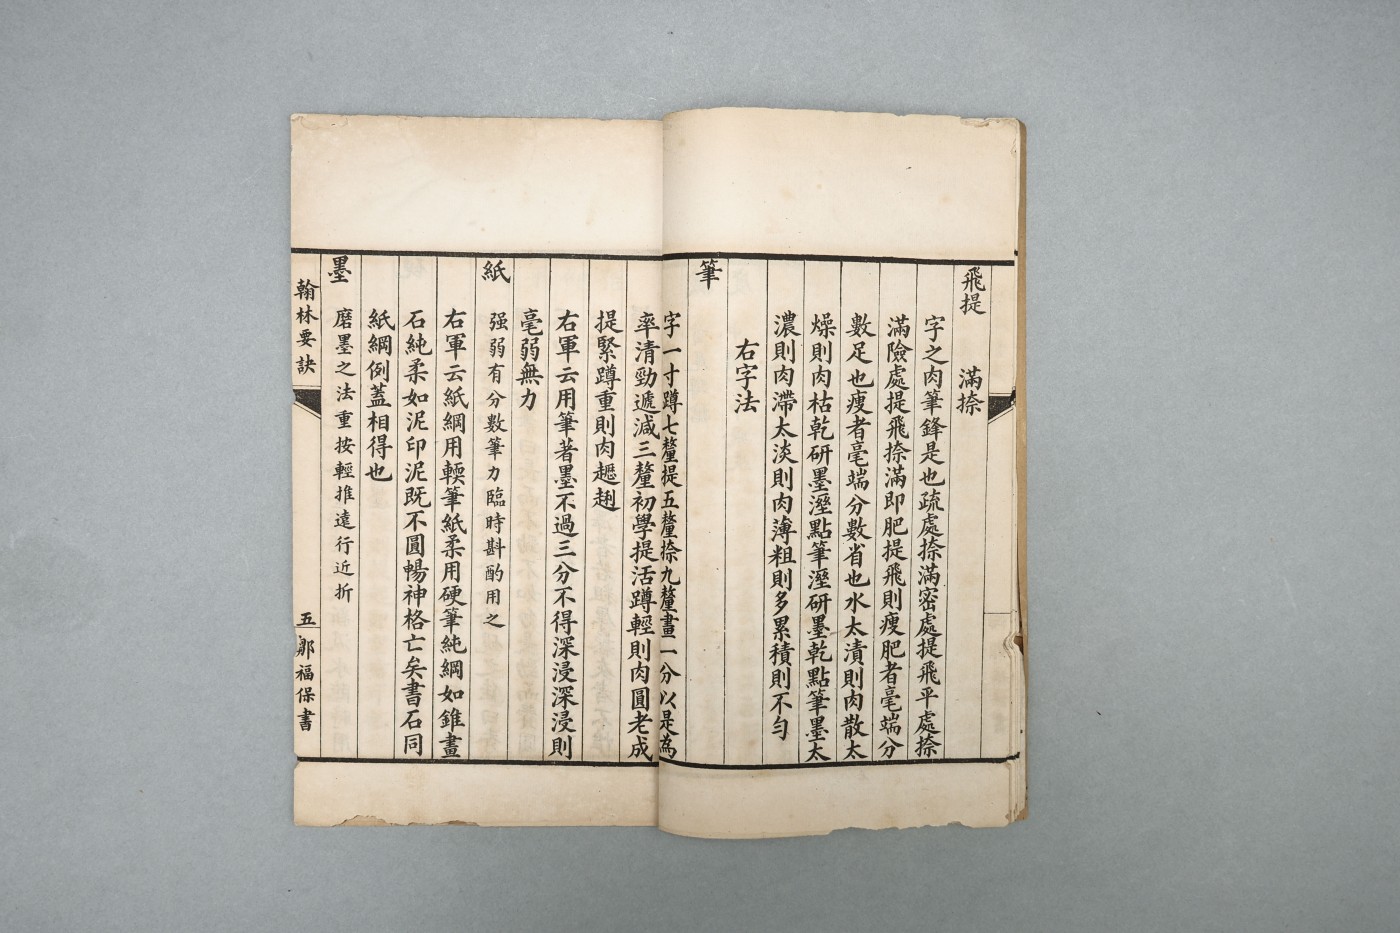 飛提　滿捺
字之肉筆鋒是也疏處捺滿密處提飛平處捺
滿險處提飛捺滿即肥提飛則瘦肥者毫端分
數足也瘦者毫端分數省也水太漬則肉散太
燥則肉枯乾研墨溼點筆溼研墨乾點筆墨太
濃則肉滯太淡則肉薄粗則多累積則不勻
右字法
筆
字一寸蹲七釐提五釐捺九釐畫一分以是為
率清勁遞減三釐初學提活蹲輕則肉圓老成
提緊蹲重則肉趰趔
右軍云用筆著墨不過三分不得深浸深浸則
毫弱無力
紙　强弱有分數筆力臨時斟酌用之
右軍云紙綱用輭筆紙柔用硬筆純綱如錐畫
石純柔如泥印泥既不圓暢神格亡矣書石同
紙綱例蓋相得也
墨　磨墨之法重按輕推遠行近折
翰林要訣　五　鄒福保書